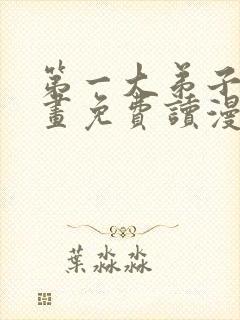 第一大弟子
畫免費讀漫
葉淼淼